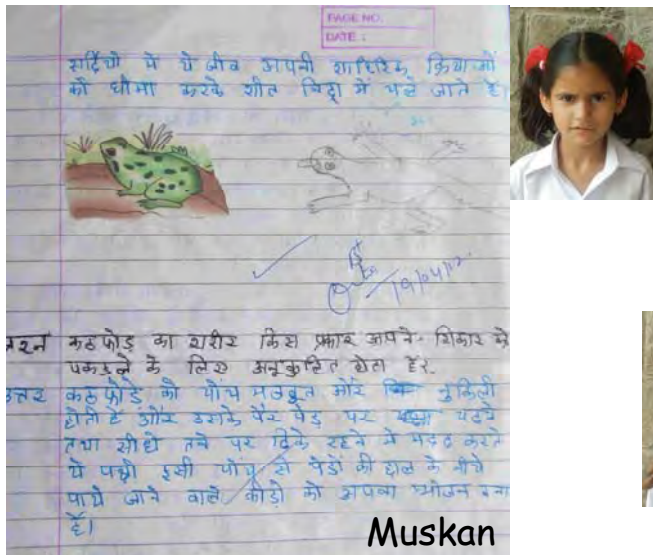 PAGE NO.
DATE :
सर्दियो मे ये जीव अपनी शारिरिक क्रियाओं
को धीमा करके शीत निद्रा में चले जाते है।
19/04/02
प्रश्न कठफोड़ का शरीर किस प्रकार अपने शिकार को
पकडने के लिए अनुकूलित होता है?
उत्तर कठफोडे की चोंच मजबूत और नुकिली
होती है और उसके पैर पेड़ पर चढने
तथा सीधे तने पर टिके रहने मे मदद करते
ये पक्षी इसी चोंच से पेडों की छाल के नीचे
पाये जाने वाले कीडो को अपना भोजन बना
हैं।
Muskan